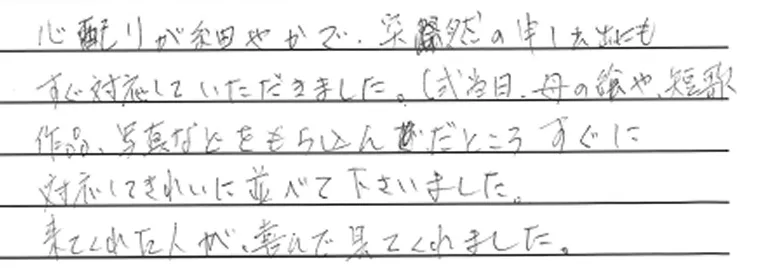 心配りが細やかで、突然の申し出にも
すぐ対応していただきました。(式当日、母の絵や、短歌
作品、写真などをもち込んだところすぐに
対応してきれいに並べて下さいました。
来てくれた人が、喜んで見てくれました。